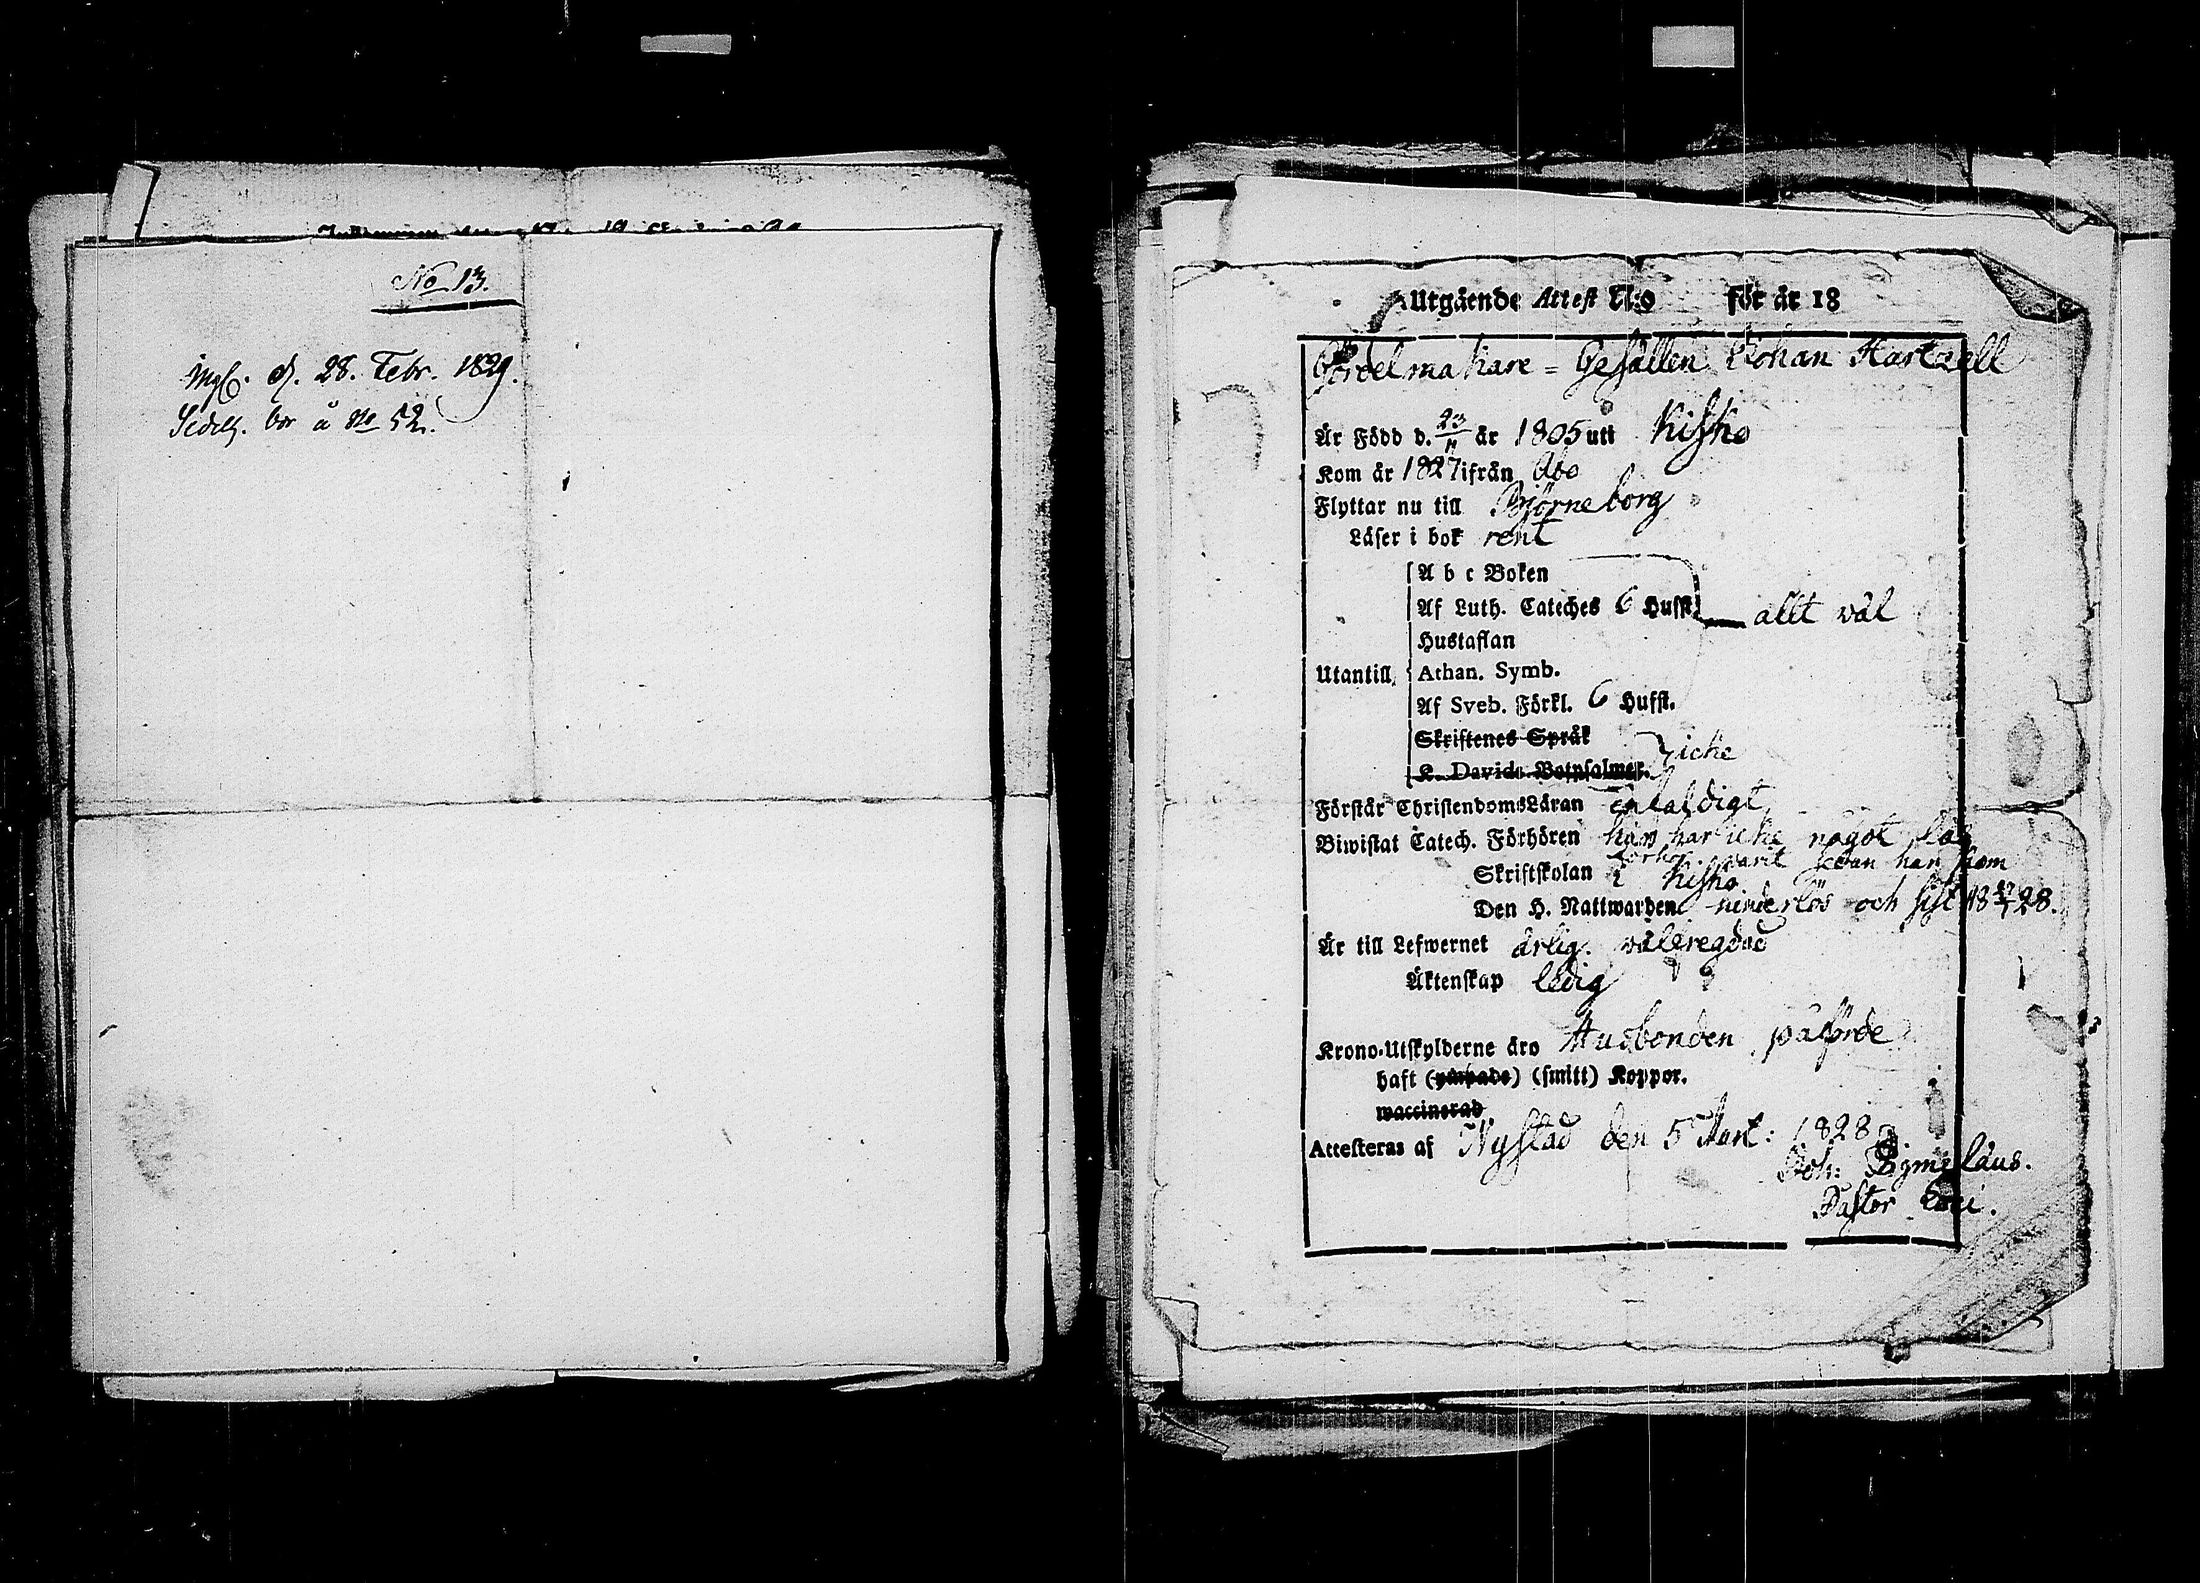 No 13.
Ingf. d. 28. Febr. 1829.
Sedelg. bor å No 52.
Utgående Attest N:o för år 18
Gördelmakare = Gesällen Johan Hartzell
Är Född d. 23/11 år 1805 uti Kisko
Kom år 1827 ifrån Åbo
Flyttar nu till Björneborg
Läser i bok rent
A b c Boken
Af Luth. Cateches 6 Hufst. allt wäl
Hustaflan
Utantill, Athan. Symb.
Af Sveb. Förkl. 6 Hufst.
Skriftenes Språk
K. Davids Botpsalmer. icke
Förstår Christendoms Läran enfaldigt
Biwistat Catech. Förhören han har icke något läs
förhör warit sedan han kom
Skriftskolan i Kisko
Den H. Nattwarden och sist 18 28.
Är till Lefwernet ärlig. wälfregdad
Äktenskap ledig
Krono-Utskylderne äro Husbonden påförde
haft (ympade) (smitt) Koppor.
waccinerad
Attesteras af Nystad den 5 Mart: 1828
Joh:
Pastor Loci.